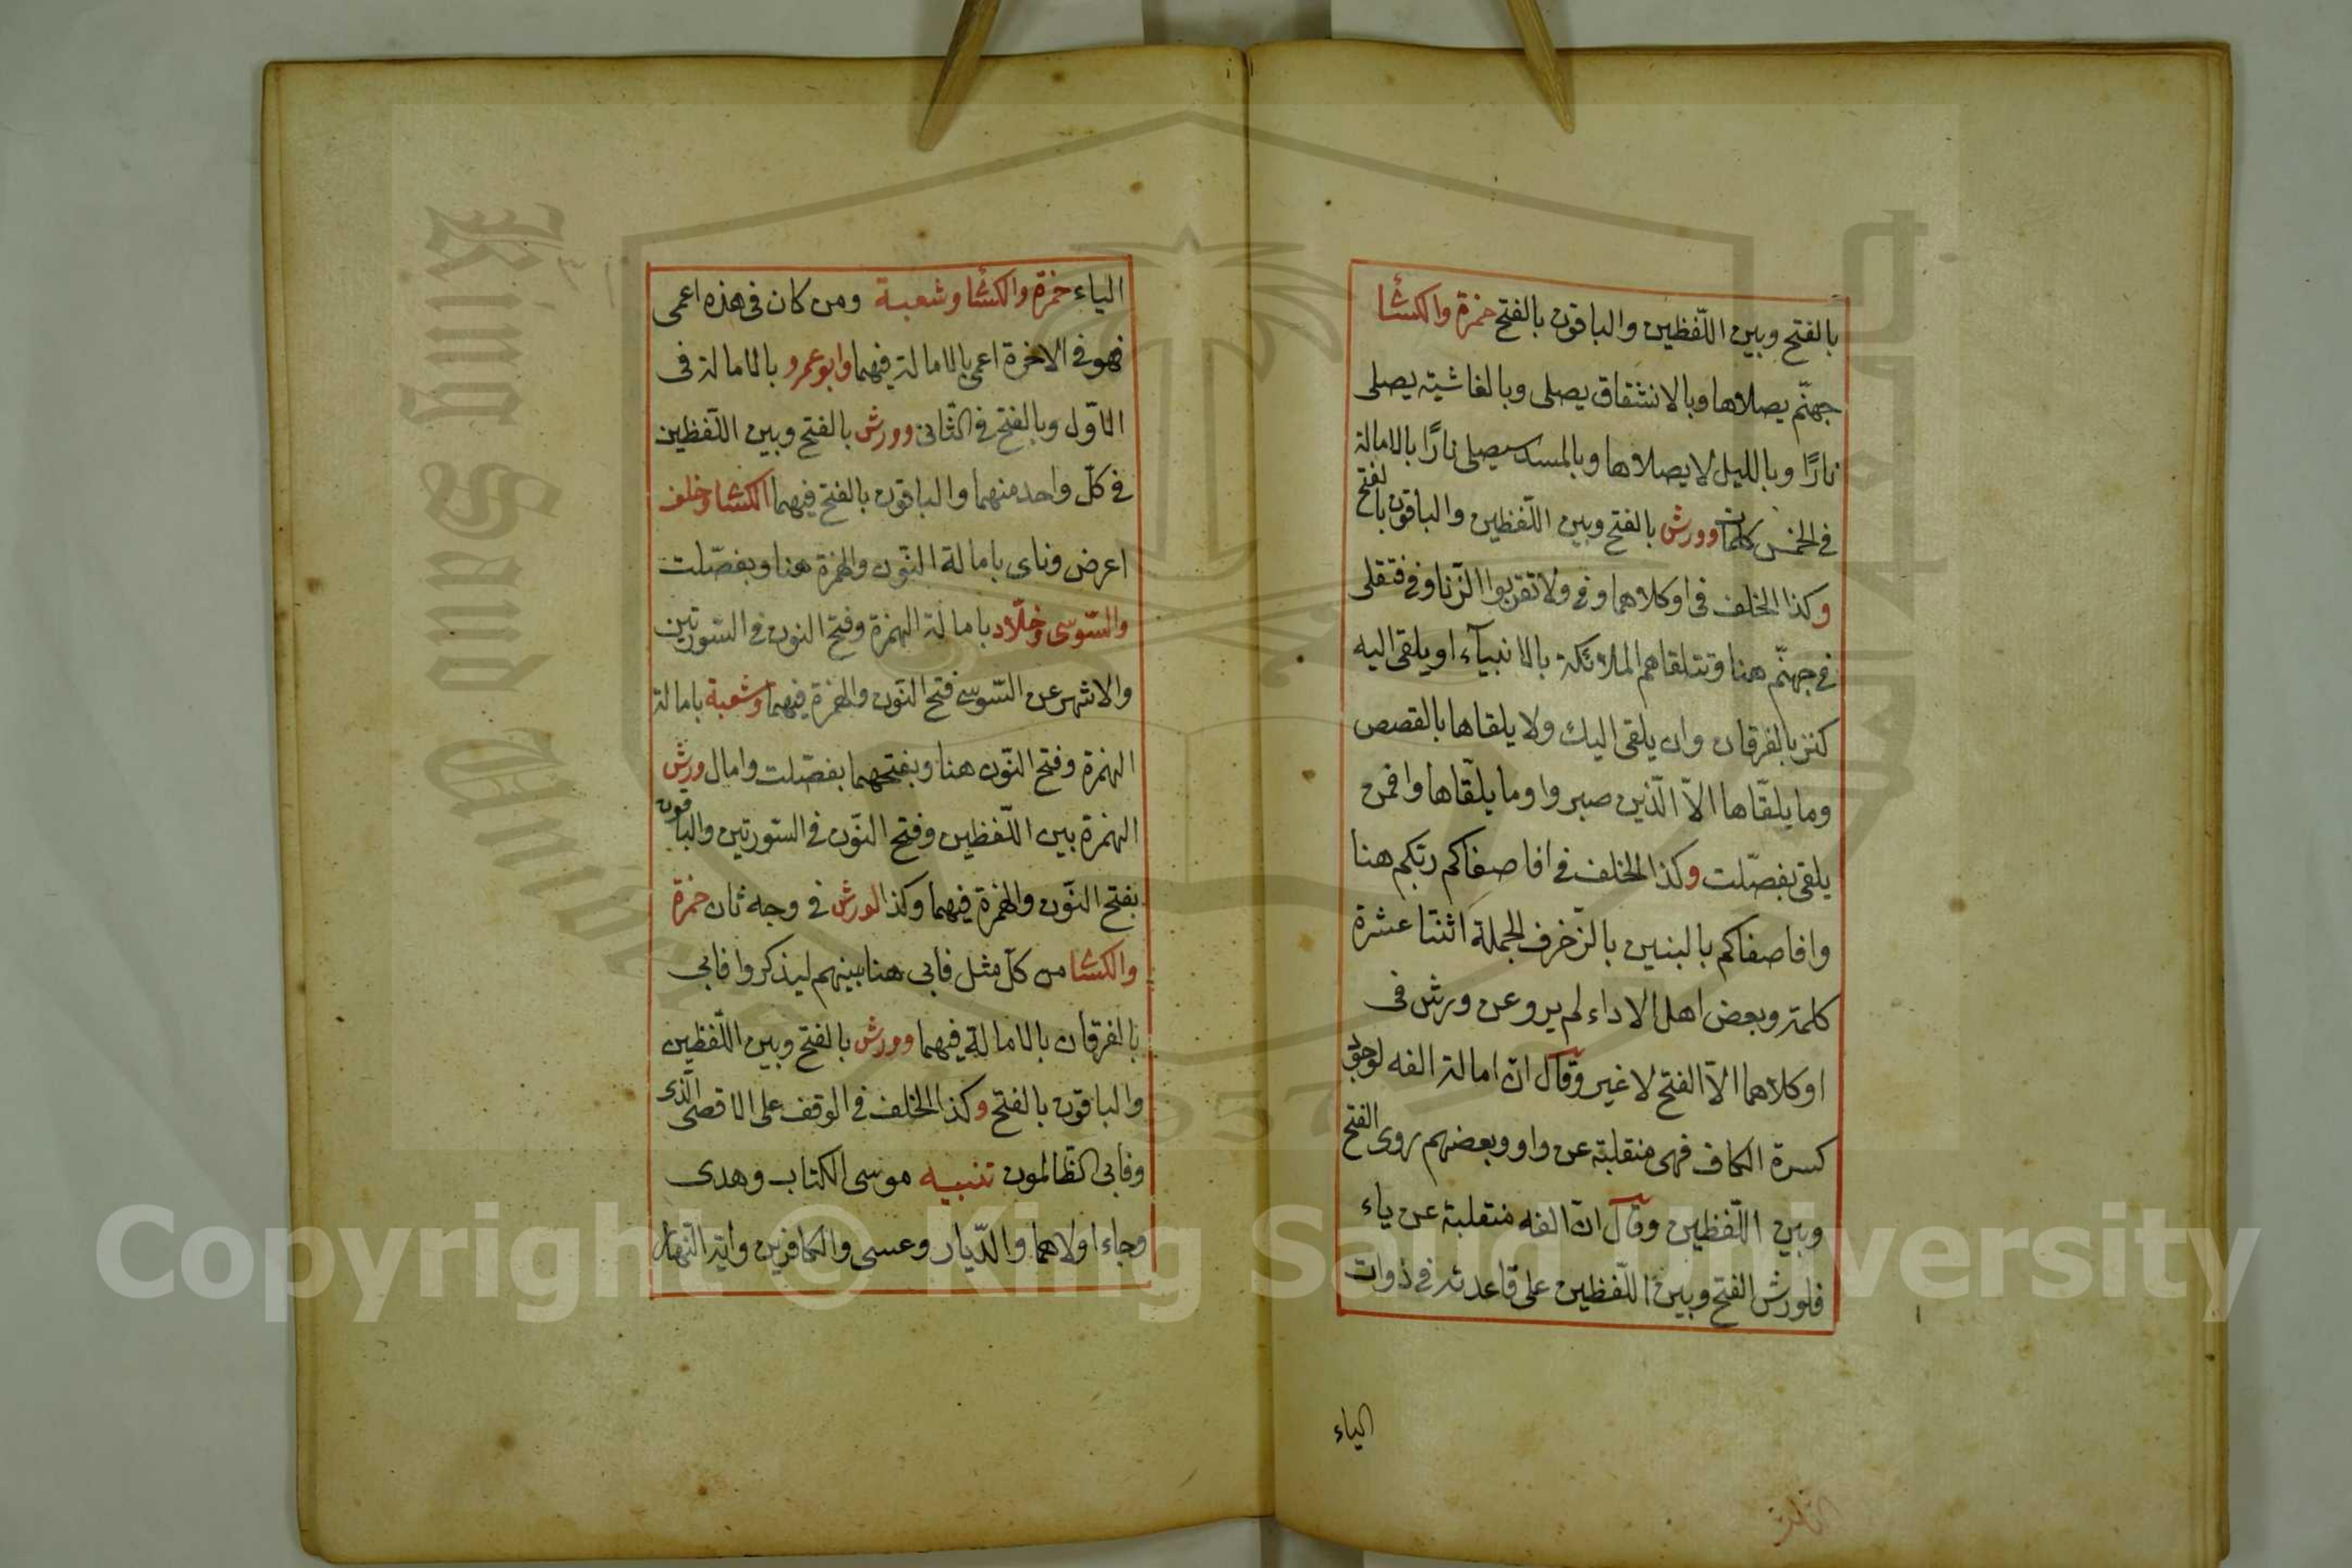 بالفتح وبين اللّفظين والباقون بالفتح حمزة والكسائ
جهنّم يصلاها وبالانشقاق يصلى وبالغاشية يصلى
نارًا وبالليل لا يصلاها وبالمسد سيصلى نارًا بالامالة
في الخمس كلمات وورش بالفتح وبين اللّفظين والباقون بالفتح
وكذا الخلف فى اوكلاهما وفى ولا تقربوا الزّنا وفى فتقلى
فى جهنّم هنا وتتلقاهم الملائكة بالانبيآء او يلقى اليه
كنز بالفرقان وان يلقى اليك ولا يلقاها بالقصص
وما يلقّاها الاّ الّذين صبروا وما يلقّاها وافمن
يلقى بفصّلت وكذا الخلف فى افاصفاكم ربّكم هنا
وافاصفاكم بالبنين بالزّخرف الجملة اثنتا عشرة
كلمة وبعض اهل الاداء لم يرو عن ورش فى
اوكلاهما الاّ الفتح لا غير وقال انّ امالة الفه لوجود
كسرة الكاف فهى منقلبة عن واو وبعضهم روى الفتح
وبين اللّفظين وقال انّ الفه منقلبة عن ياء
فلورش الفتح وبين اللّفظين على قاعدته فى ذوات
الياء
الياء حمزة والكسائ وشعبة ومن كان فى هذه اعمى
فهو فى الاخرة اعمى بالامالة فيهما وابو عمرو بالامالة فى
الاوّل وبالفتح فى الثّانى وورش بالفتح وبين اللّفظين
فى كلّ واحد منهما والباقون بالفتح فيهما الكسائ وخلف
اعرض وناى بامالة النّون والهمزة هنا وبفصّلت
والسّوسى وخلّاد بامالة الهمزة وفتح النون فى السّورتين
والاشهر عن السّوسى فتح النّون والهمزة فيهما وشعبة بامالة
الهمزة وفتح النّون هنا وبفتحهما بفصّلت وامال ورش
الهمزة بين اللّفظين وفتح النّون فى السّورتين والباقون
بفتح النّون والهمزة فيهما وكذا لورش فى وجه ثان حمزة
والكسائ من كلّ مثل فابى هنا بينهم ليذكروا فابى
بالفرقان بالامالة فيهما وورش بالفتح وبين اللّفظين
والباقون بالفتح وكذا الخلف فى الوقف على الاقصى الّذى
وفابى الظّالمون تنبيه موسى الكتاب وهدى
وجاء اولاهما والدّيار وعسى والكافرين واية النّهار
Copyright © King Saud University
King Saud University
1957